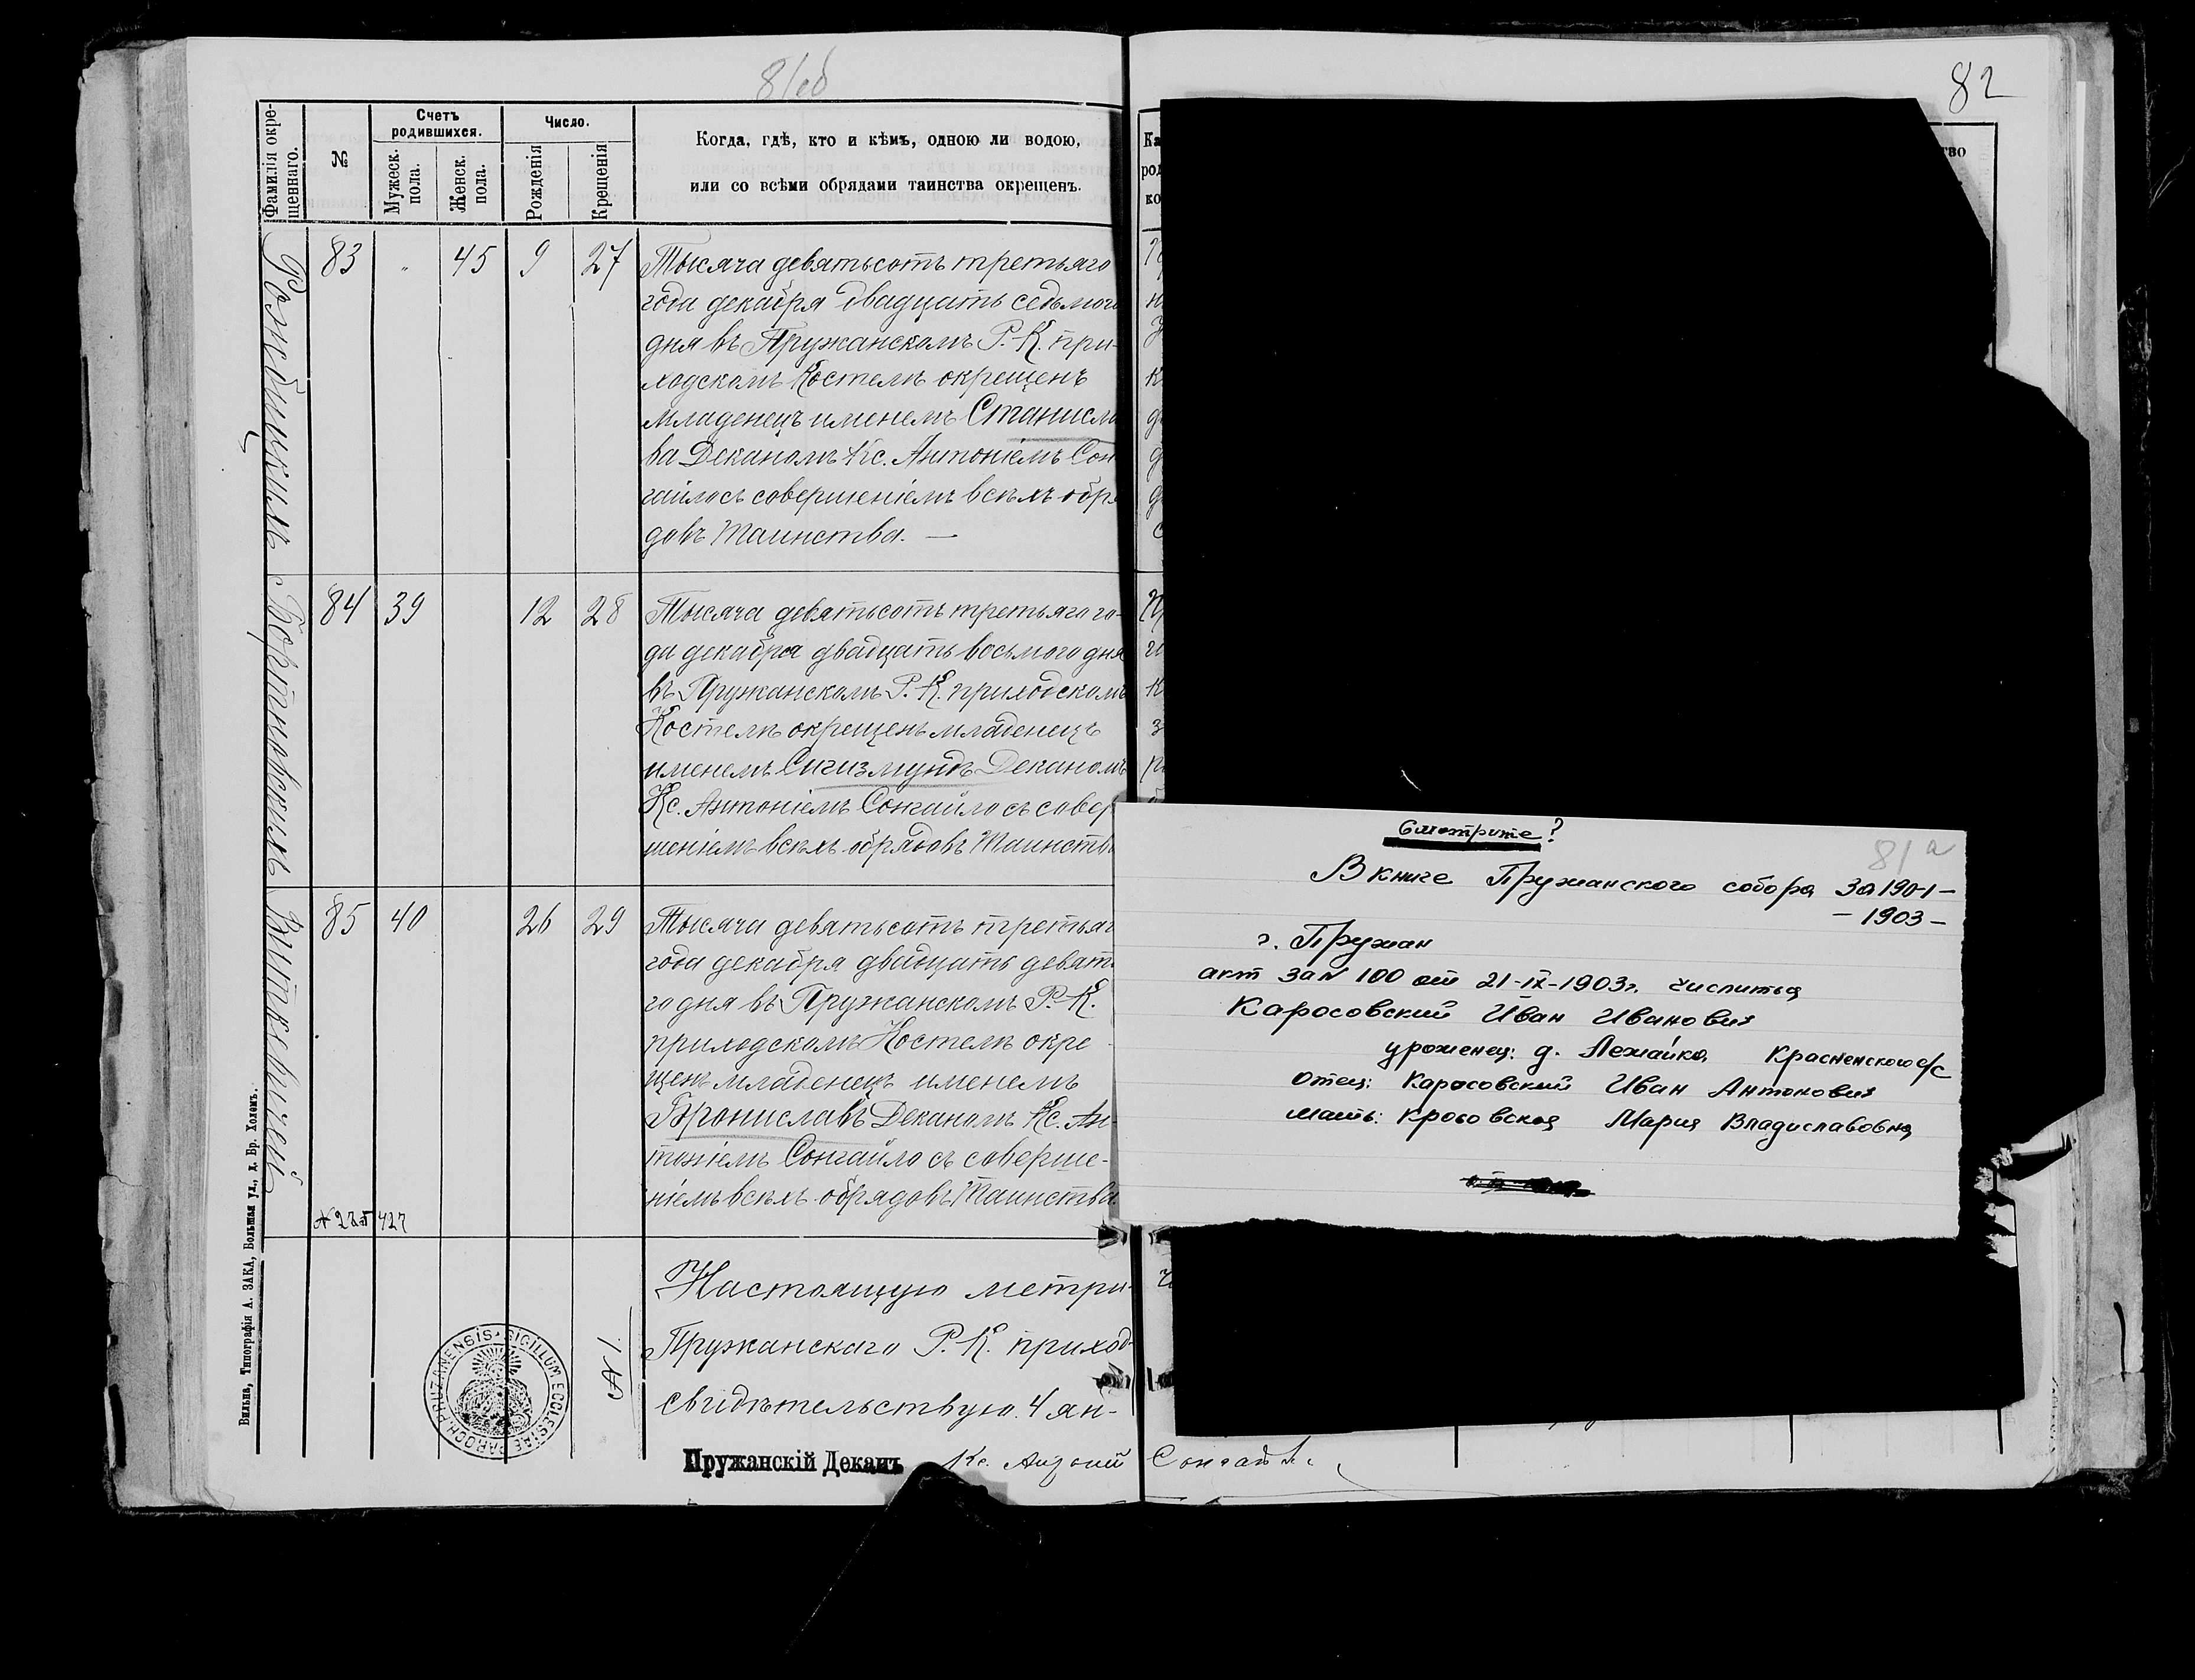 82
Фамилія окре-
щеннаго.
№
Счетъ
родившихся.
Мужеск.
пола.
Женск.
пола.
Число.
Рожденія
Крещенія
Когда, гдѣ, кто и кѣмъ, одною ли водою,
или со всѣми обрядами таинства окрещенъ.
83 „ 45 9 27
Тысяча девятьсотъ третьяго
года декабря двадцать седьмого
дня въ Пружанскомъ Р. К. при-
ходскомъ Костелѣ окрещенъ
младенецъ именемъ Станисла
ва Деканомъ Кс. Антоніемъ Сон
гайло съ совершеніемъ всѣхъ обря
довъ Таинства. —
84 39 12 28
Тысяча девятьсотъ третьяго го-
да декабря двадцать восьмого дня
въ Пружанскомъ Р. К. приходскомъ
Костелѣ окрещенъ младенецъ
именемъ Сигизмундъ Деканомъ
Кс. Антоніемъ Сонгайло съ совер
шеніемъ всѣхъ обрядовъ Таинства
85 40 26 29
Тысяча девятьсотъ третьяго
года декабря двадцать девят
го дня въ Пружанскомъ Р. К.
приходскомъ Костелѣ окре
щенъ младенецъ именемъ
Брониславъ Деканомъ Кс. Ан-
тоніемъ Сонгайло съ соверше-
ніемъ всѣхъ обрядовъ Таинства.
Витковичей
Настоящую метри-
Пружанскаго Р. К. приход-
свидѣтельствую. 4 ян-
№ 1.
SIGILLUM ECCLESIAE PAROCH. PRUZANENSIS
Пружанскій Деканъ Кс. Антоній Сонгайло
Вильна, Типографія А. ЗАКА, Большая ул., д. Бр. Холемъ.
Смотрите?
81а
В книге Пружанского собора за 1901-
- 1903 -
г. Пружан
акт за N 100 от 21-IX-1903г. числитья
Каросовский Иван Иванович
уроженец: д. Лежайка, Красненского с/с
Отец: Каросовский Иван Антонович
мать: Кросовская Мария Владиславовна